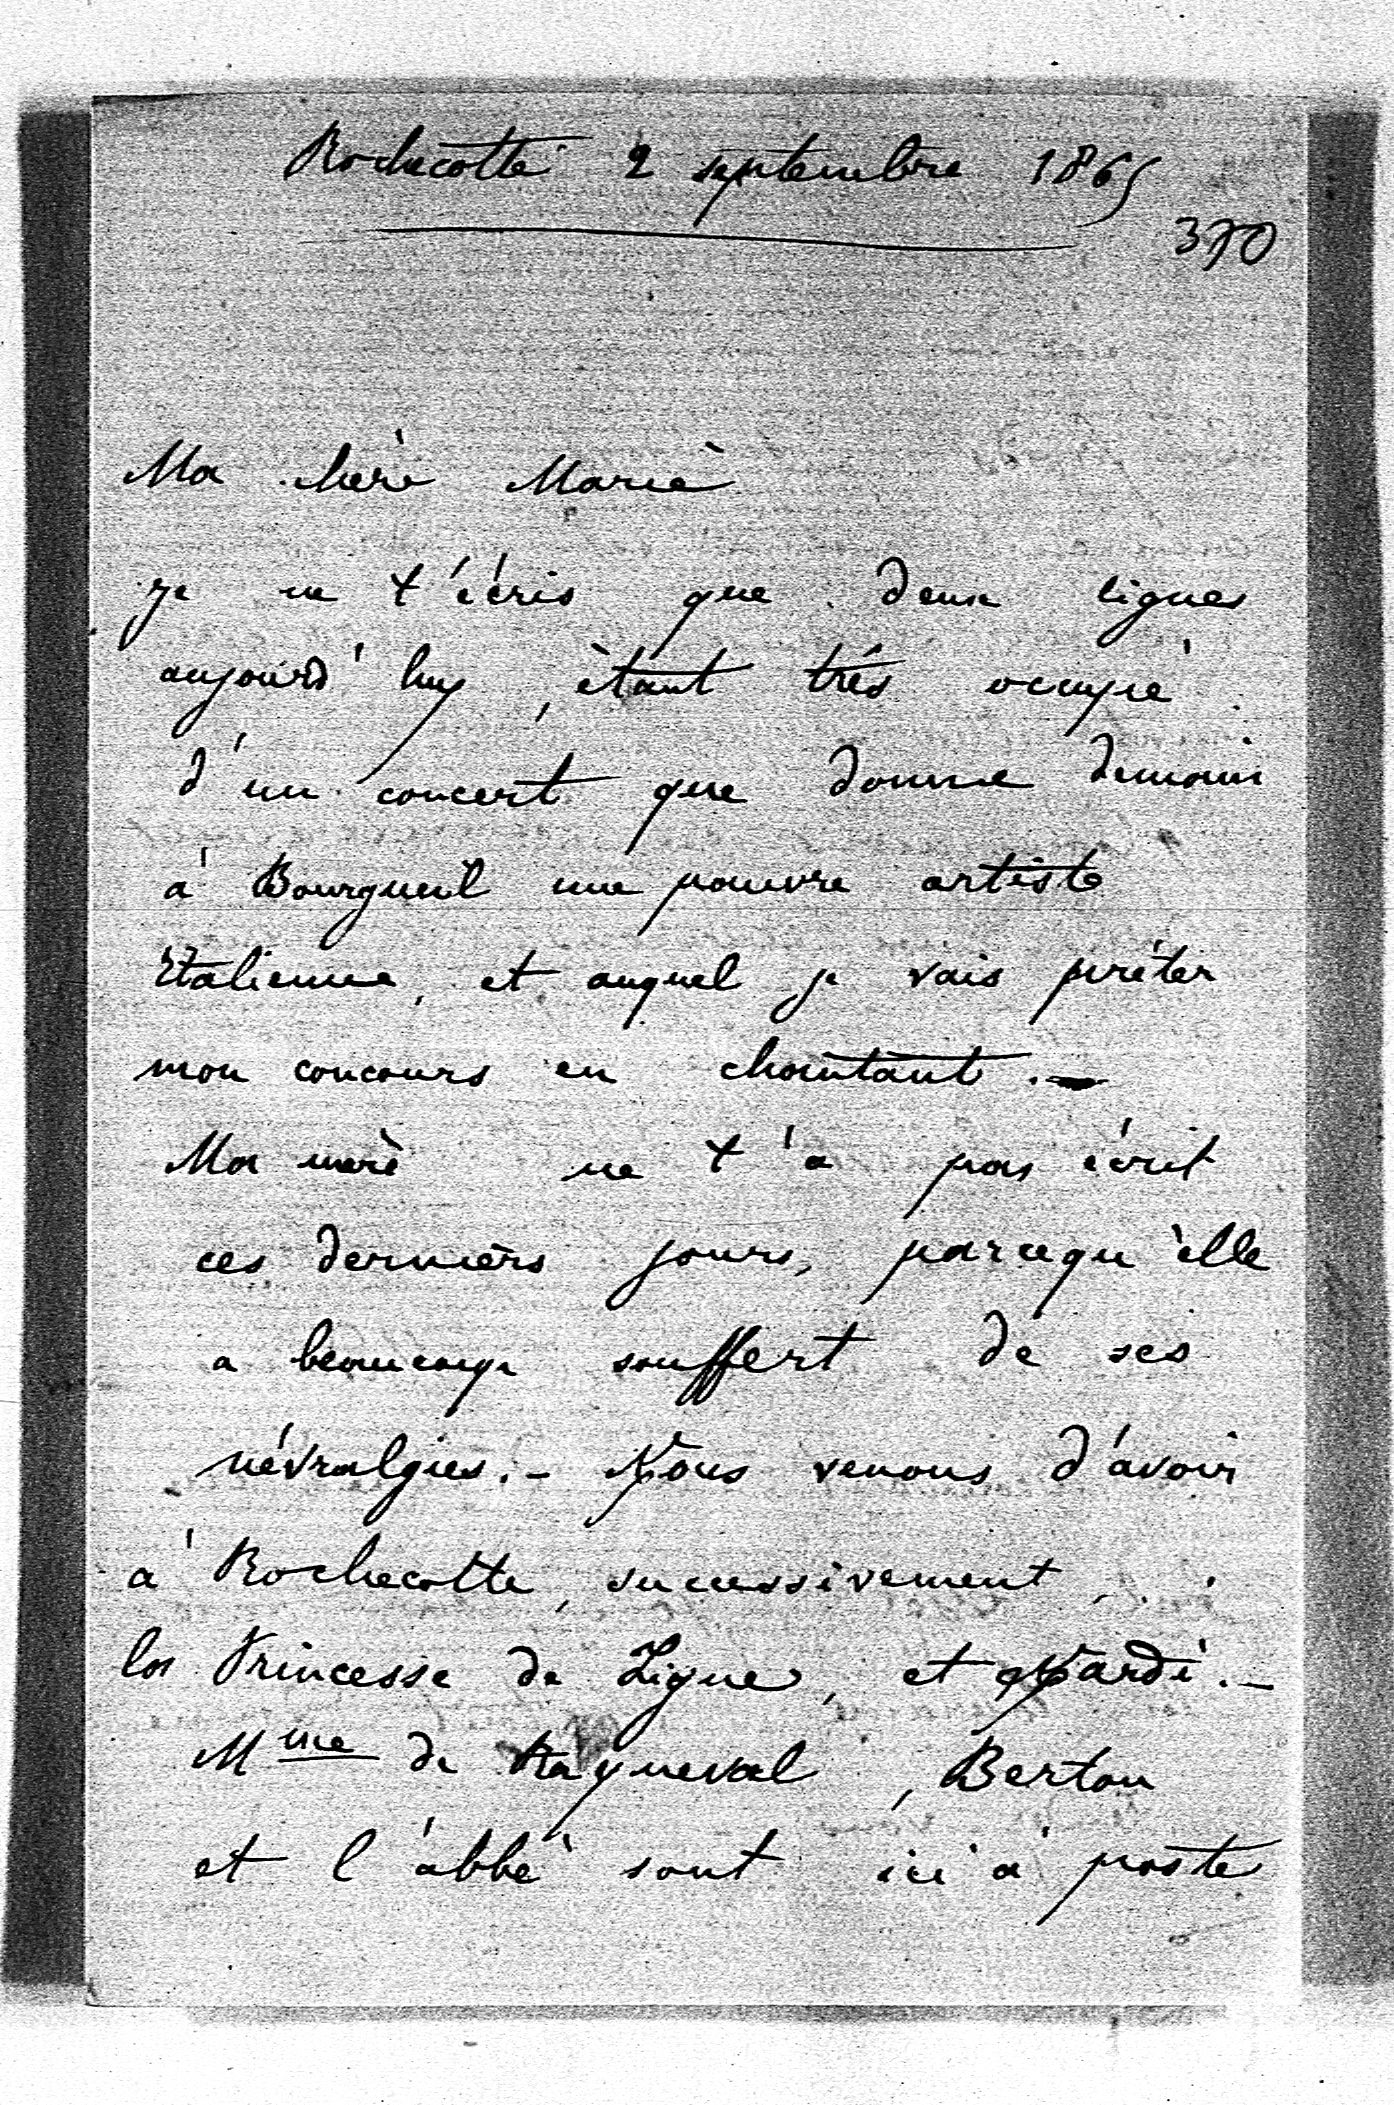 Rochecotte 2 septembre 1865
370
Ma chère Marie
je ne t'écris que deux lignes
aujourd'huy, étant très occupé
d'un concert que donne demain
à Bourgueil une pauvre artiste
Italienne, et auquel je vais prêter
mon concours en chantant. —
Ma mère ne t'a pas écrit
ces derniers jours, parcequ'elle
a beaucoup souffert de ses
névralgies. — Nous venons d'avoir
à Rochecotte, successivement,
la Princesse de Ligne, et . —
Mme de Rayneval, Berton
et l'abbé sont ici à poste